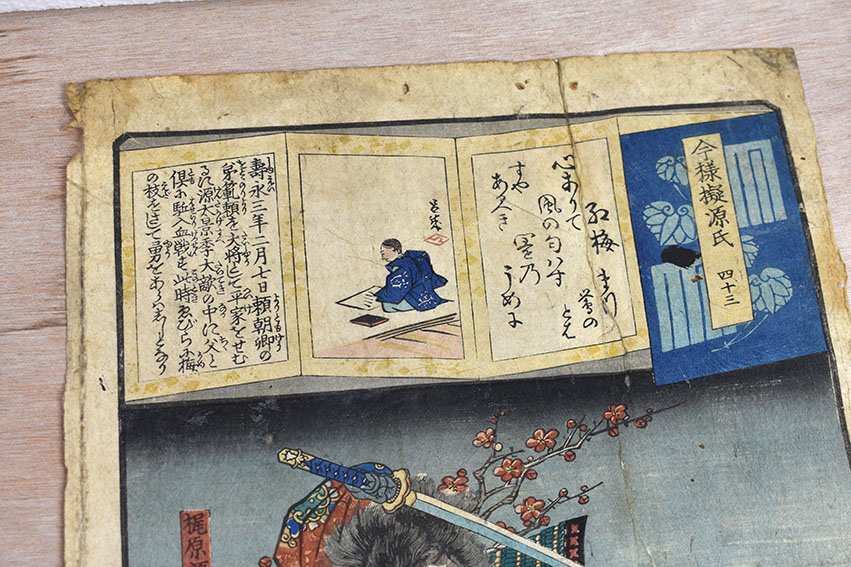 今様擬源氏
四十三
紅梅
心ありて
風の匂はす
園の
うめに
まつ
鶯の
とは
すや
あるべき
芳幾
壽永三年二月七日頼朝卿の
弟範頼を大将として平家をせむ
る源太景季大敵の中に父と
倶に駈入血戦す此時ゑびらに梅
の枝をさして勇力をあらはしゝとなり
梶原源